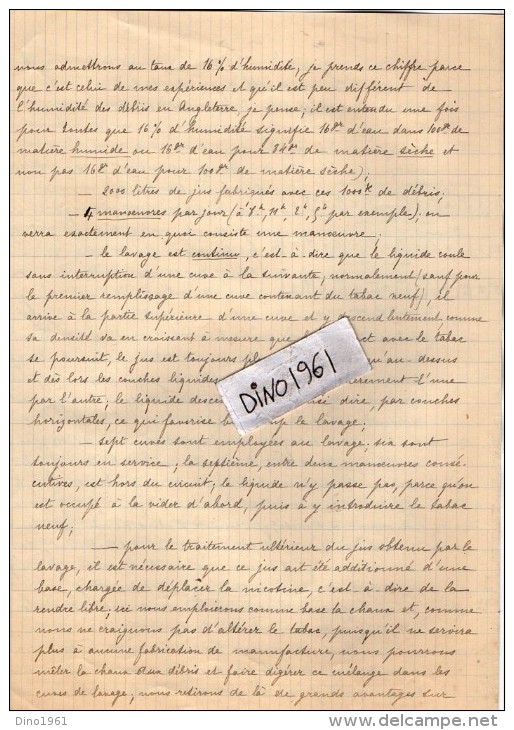 nous admettrons au taux de 16 % d'humidité, je prends ce chiffre parce
que c'est celui de mes expériences et qu'il est peu différent de
l'humidité des débris en Angleterre je pense; il est entendu une fois
pour toutes que 16 % d'humidité signifie 16gr d'eau dans 100gr de
matière humide ou 16gr d'eau pour 84gr de matière sèche et
non pas 16gr d'eau pour 100gr de matière sèche);
— 2000 litres de jus fabriqués avec ces 1000k de débris;
— 4 manœuvres par jour (à 8h, 11h, 2h, 5h par exemple); on
verra exactement en quoi consiste une manœuvre.
— le lavage est continu, c'est-à-dire que le liquide coule
sans interruption d'une cuve à la suivante; normalement (sauf pour
le premier remplissage d'une cuve contenant du tabac neuf), il
arrive à la partie supérieure d'une cuve et y descend lentement comme
sa densité va en croissant à mesure que avec le tabac
se poursuit, le jus est toujours qu'au-dessus
et dès lors les couches liquides l'une
par l'autre; le liquide dire, par couches
horizontales, ce qui favorise le lavage;
— sept cuves sont employées au lavage, six sont
toujours en service; la septième, entre deux manœuvres consé-
cutives, est hors du circuit; le liquide n'y passe pas, parce qu'on
est occupé à la vider d'abord, puis à y introduire le tabac
neuf;
— pour le traitement ultérieur du jus obtenu par le
lavage, il est nécessaire que ce jus ait été additionné d'une
base, chargée de déplacer la nicotine, c'est-à dire de la
rendre libre; ici nous emploierons comme base la chaux et, comme
nous ne craignons pas d'altérer le tabac, puisqu'il ne servira
plus à aucune fabrication de manufacture, nous pourrons
mêler la chaux aux débris et faire digérer ce mélange dans les
cuves de lavage; nous retirons de là de grands avantages sur
DINO1961
Dino1961
www.delcampe.net